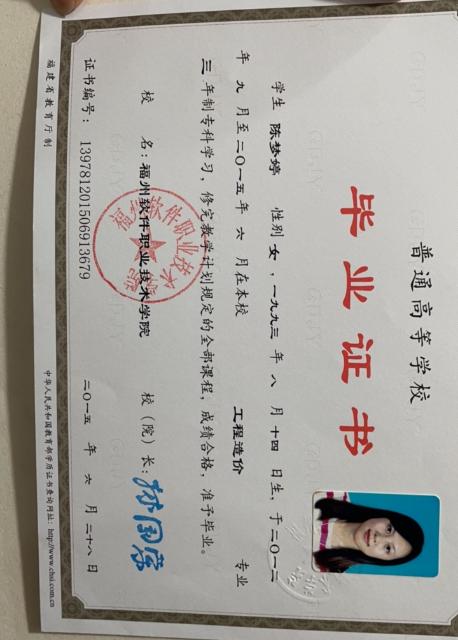 普通高等学校
毕业证书
学生 陈梦婷 性别 女 ，一九九三 年 八 月 十四 日生，于二〇一二
年 九 月至二〇一五年 六 月在本校 工程造价 专业
三 年制专科学习，修完教学计划规定的全部课程，成绩合格，准予毕业。
校 名：福州软件职业技术学院 校（院）长：
证书编号： 139781201506913679 二〇一五 年 六 月 二十八 日
福建省教育厅制 中华人民共和国教育部学历证书查询网址：http://www.chsi.com.cn